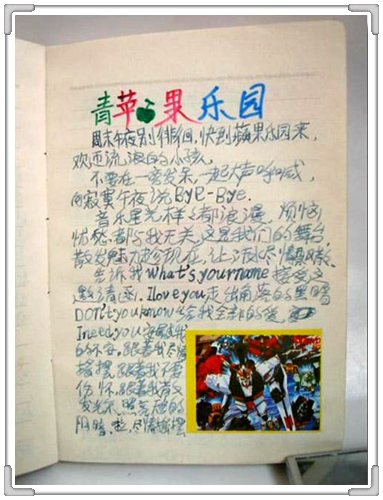 青苹果乐园
周末午夜别徘徊,快到苹果乐园来,
欢迎流浪的小孩,
不要在一旁发呆,一起大声呼喊,
向寂寞午夜说BYE-BYE.
音乐星光样样都浪漫,烦恼
忧愁都与我无关,这是我们的舞台,
散发魅力趁现在,让汗水尽情
告诉我what's your name接受这
邀请函,I love you走出角落的黑暗
DON't you know给我全部的爱,
I need you
的不安,跟着我尽情
摇摆,跟着我不要
伤怀,跟着我青春
阴暗,尽情摇摆